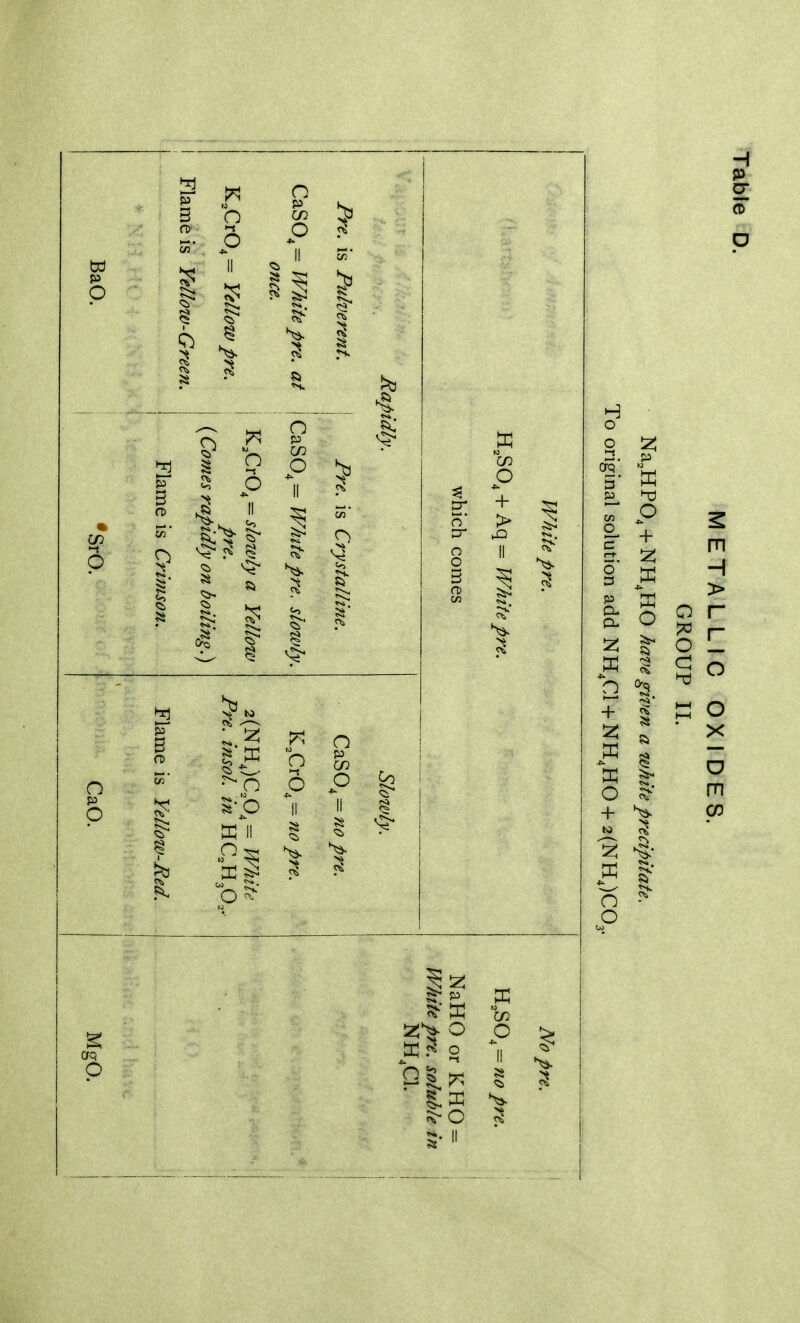 Table D.
METALLIC OXIDES.
GROUP II.
Na₂HPO₄ + NH₄HO have given a white precipitate.
To original solution add NH₄Cl + NH₄HO + 2(NH₄)CO₃.
White pre.
H₂SO₄ + Aq = White pre.
which comes
Rapidly.
Pre. is Pulverent.
CaSO₄ = White pre. at
once.
K₂CrO₄ = Yellow pre.
Flame is Yellow-Green.
BaO.
Pre. is Crystalline.
CaSO₄ = White pre. slowly.
K₂CrO₄ = slowly a Yellow
pre.
(Comes rapidly on boiling.)
Flame is Crimson.
SrO.
Slowly.
CaSO₄ = no pre.
K₂CrO₄ = no pre.
2(NH₄)C₂O₄ = White
Pre. insol. in HC₂H₃O₂.
Flame is Yellow-Red.
CaO.
No pre.
H₂SO₄ = no pre.
NaHO or KHO =
White pre. soluble in
NH₄Cl.
MgO.